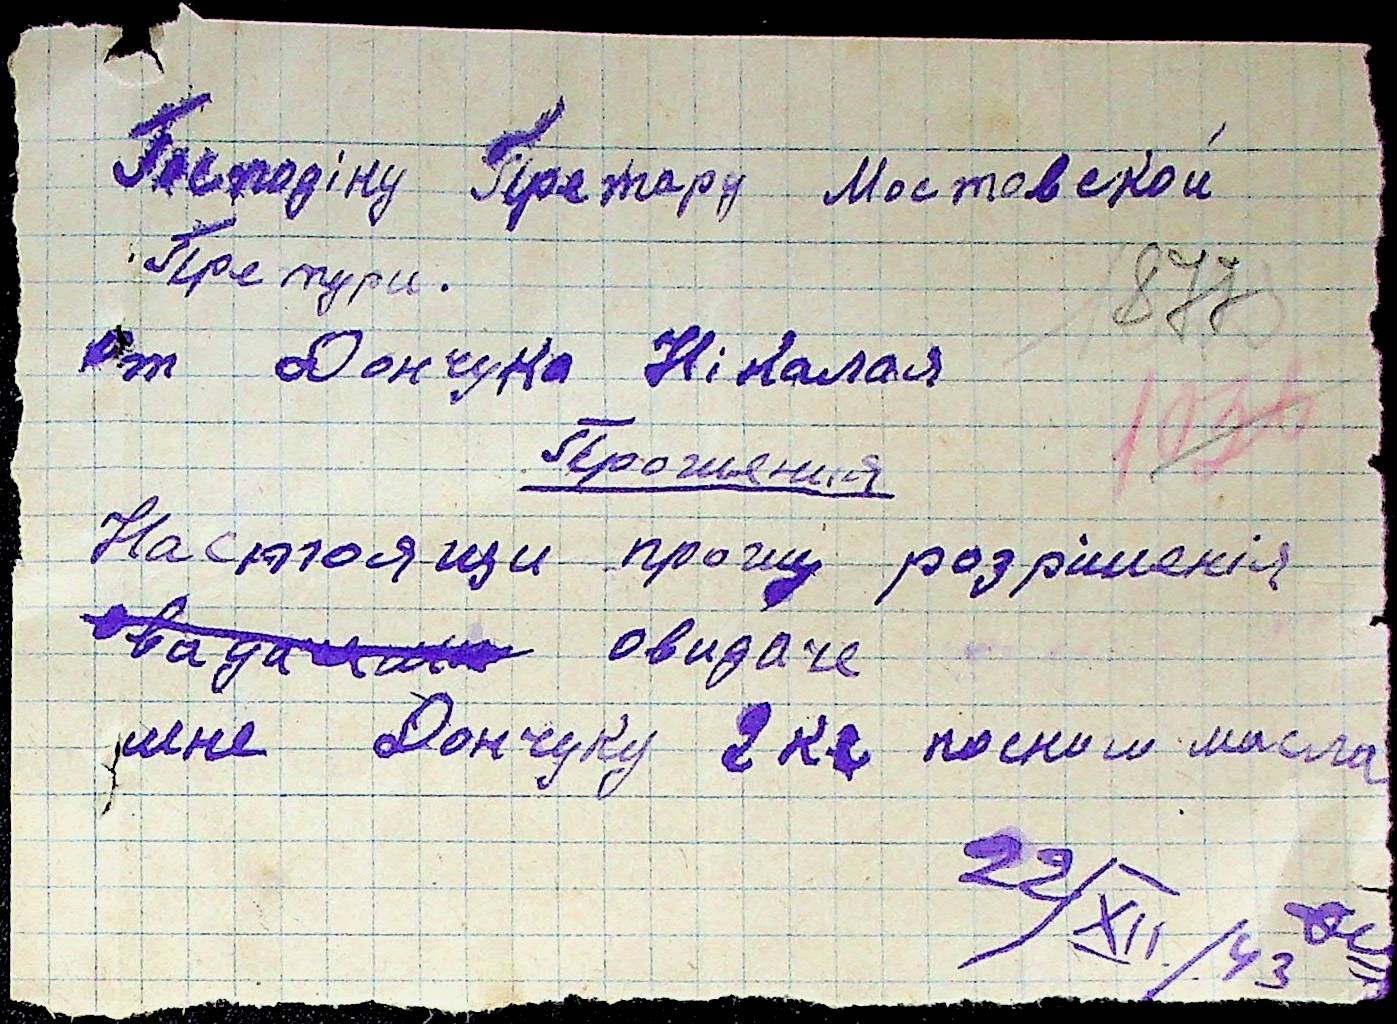 Господіну Претару Мостовской
Претури.
от Дончука Ніколая
1877
Прошения
Настоящи прошу розрішенія
овидаче
мне Дончуку 2 кг посного масла
22/XII/43